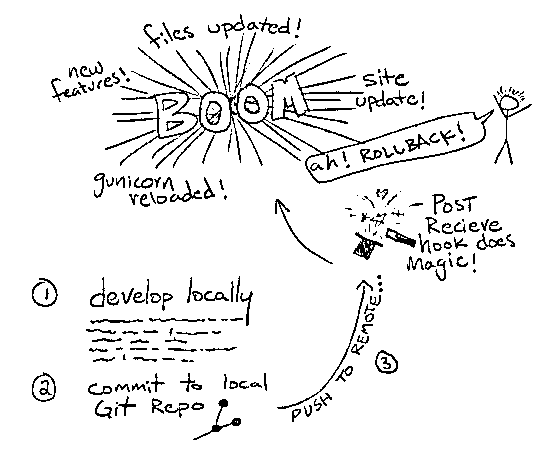 files updated!
new
features!
BOOM
site
update!
ah! ROLLBACK!
gunicorn
reloaded!
Post
Recieve
hook does
Magic!
1 develop locally
2 commit to local
Git Repo
PUSH TO REMOTE...
3